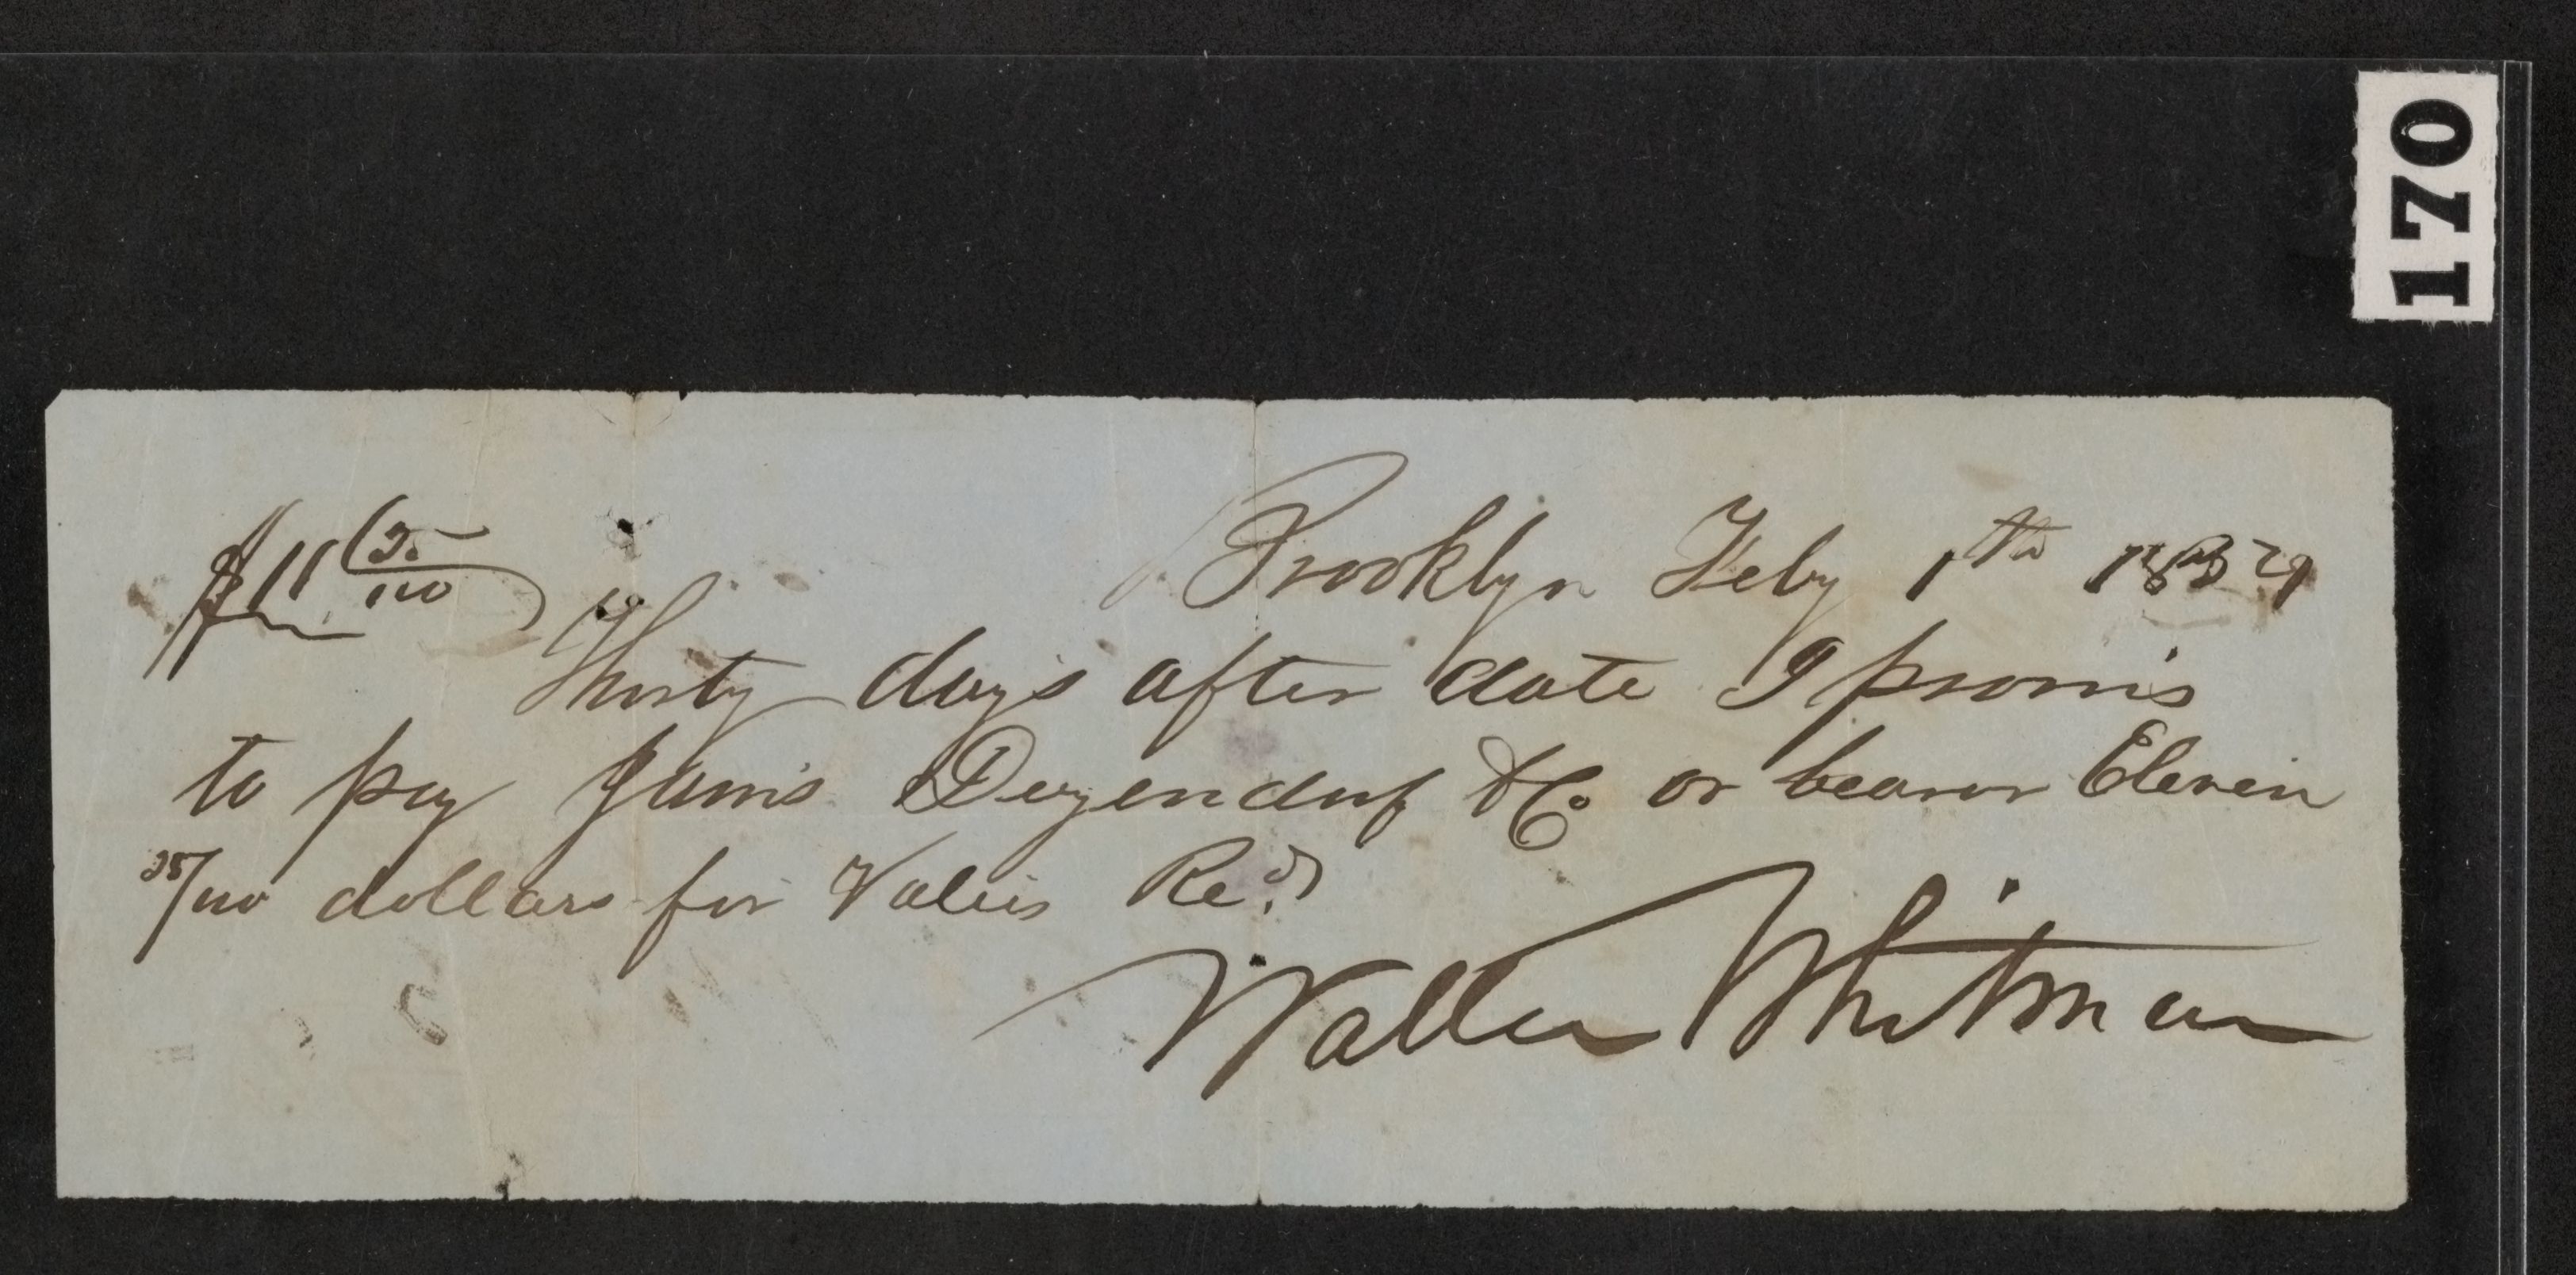 170
$11 35/100 Brooklyn Feby 1th
Thirty days after date I promis
to pay Jamis & Co or bearer Eleven
35/100 dollars for Value Recd
Walter Whitman